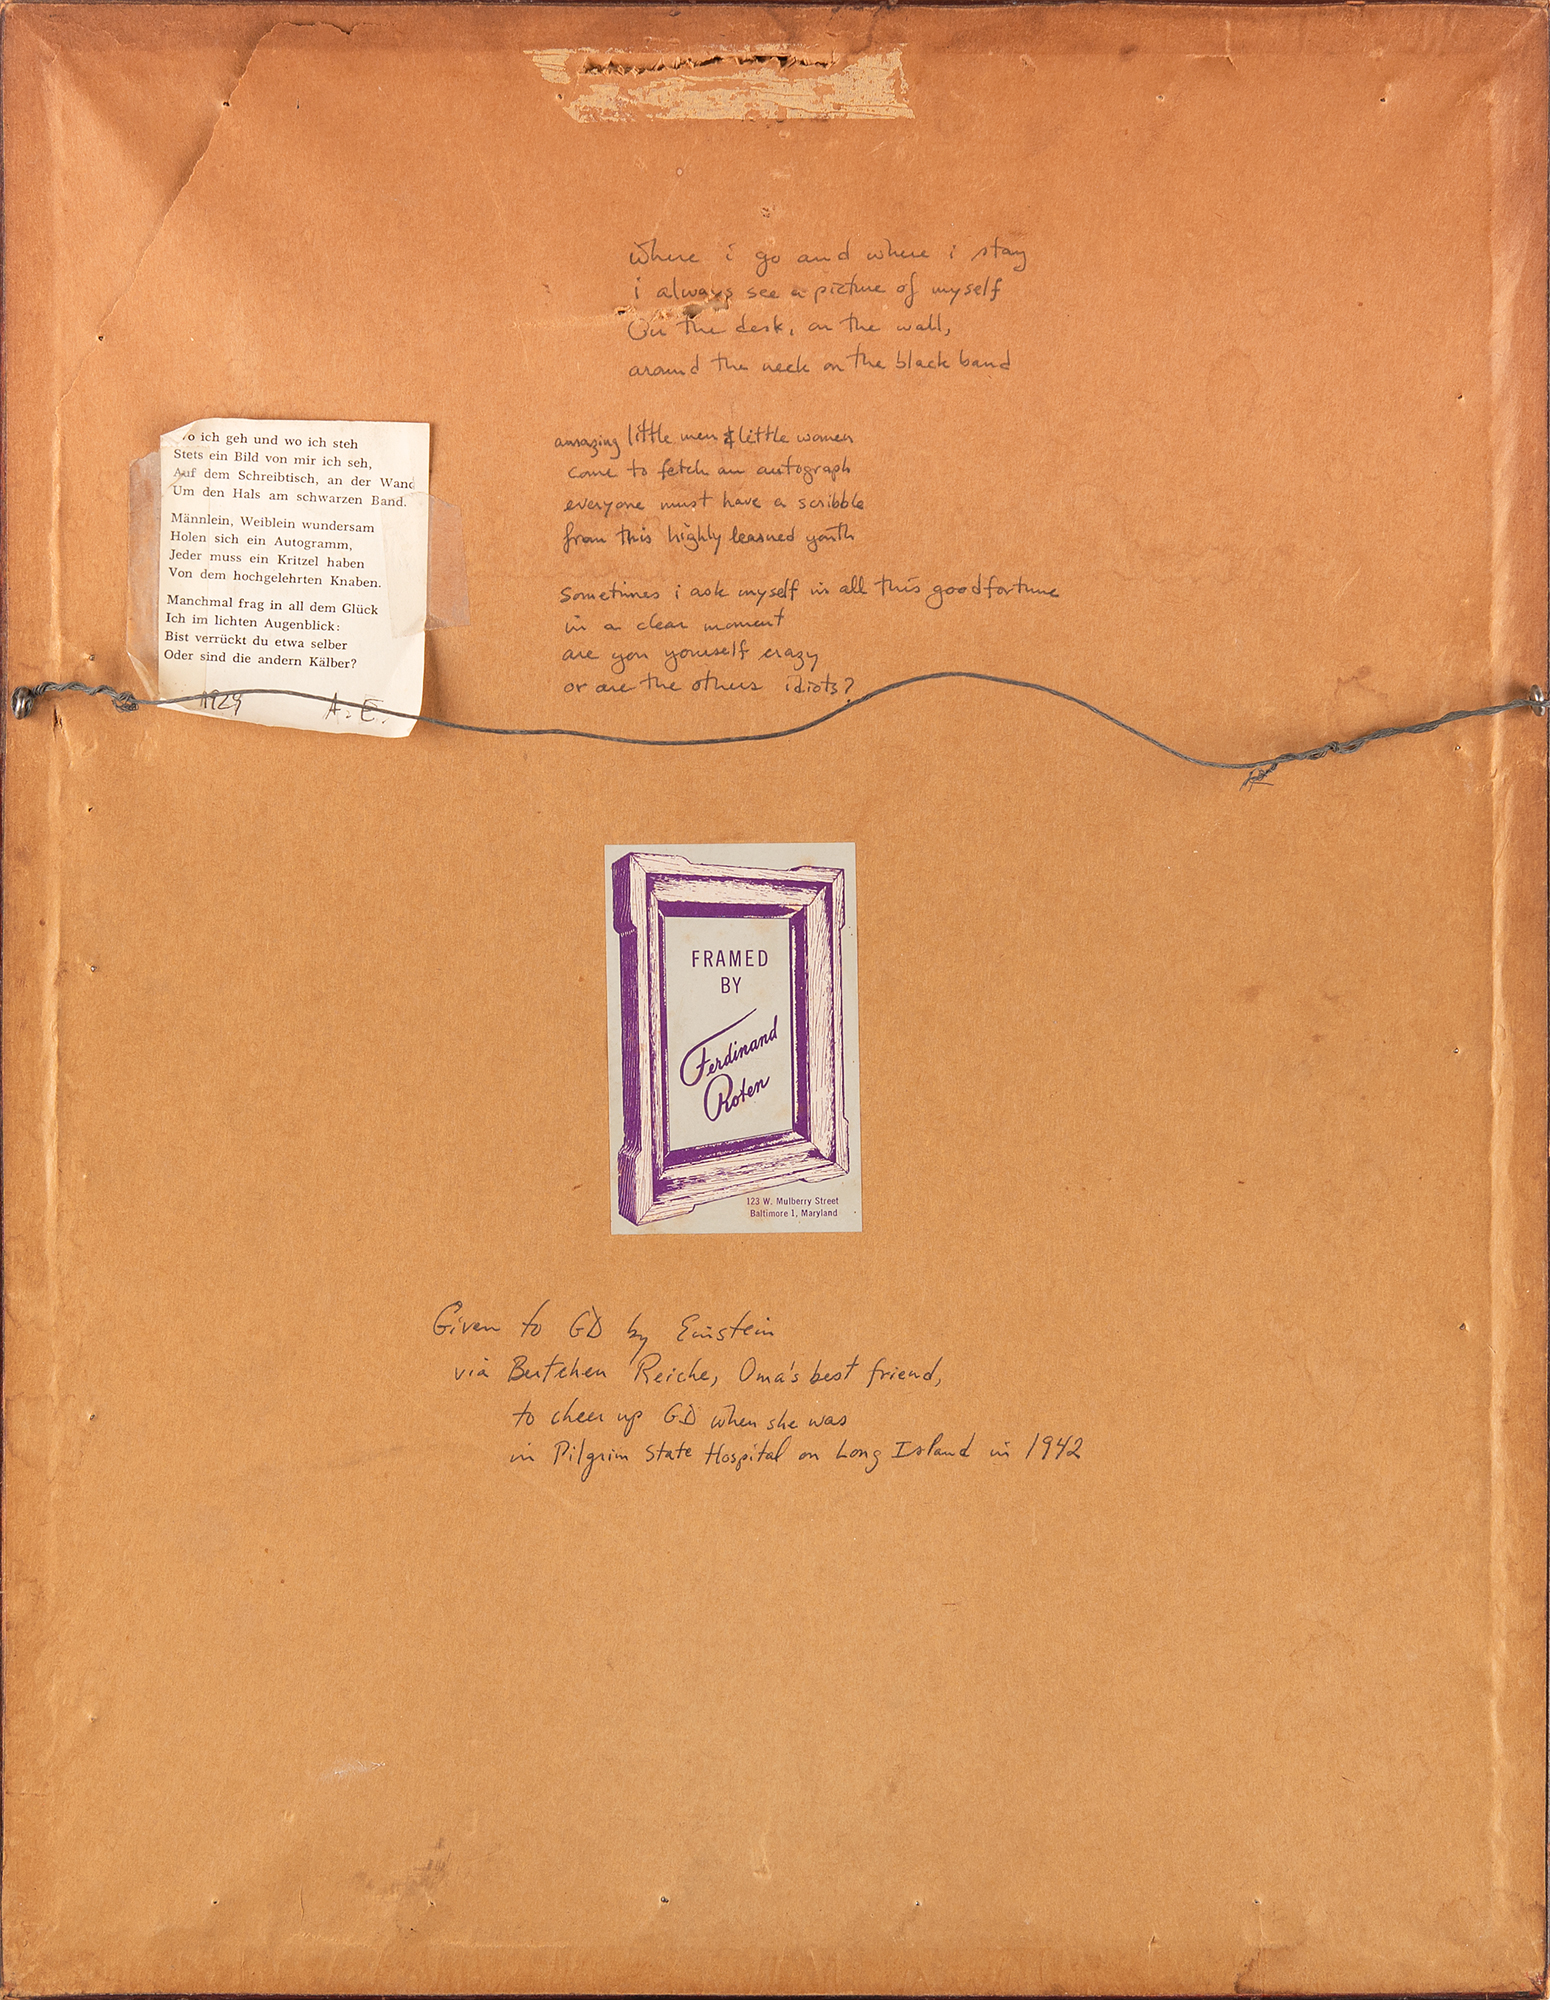 where i go and where i stay
i always see a picture of myself
On the desk, on the wall,
around the neck on the black band
amazing little men & little women
come to fetch an autograph
everyone must have a scribble
from this highly learned youth
sometimes i ask myself in all this good fortune
in a clear moment
are you yourself crazy
or are the others idiots?
o ich geh und wo ich steh
Stets ein Bild von mir ich seh,
Auf dem Schreibtisch, an der Wand
Um den Hals am schwarzen Band.
Männlein, Weiblein wundersam
Holen sich ein Autogramm,
Jeder muss ein Kritzel haben
Von dem hochgelehrten Knaben.
Manchmal frag in all dem Glück
Ich im lichten Augenblick:
Bist verrückt du etwa selber
Oder sind die andern Kälber?
1929 A. E.
FRAMED
BY
Ferdinand
Roten
123 W. Mulberry Street
Baltimore 1, Maryland
Given to GD by Einstein
via Bertchen Reiche, Oma's best friend,
to cheer up GD when she was
in Pilgrim State Hospital on Long Island in 1942